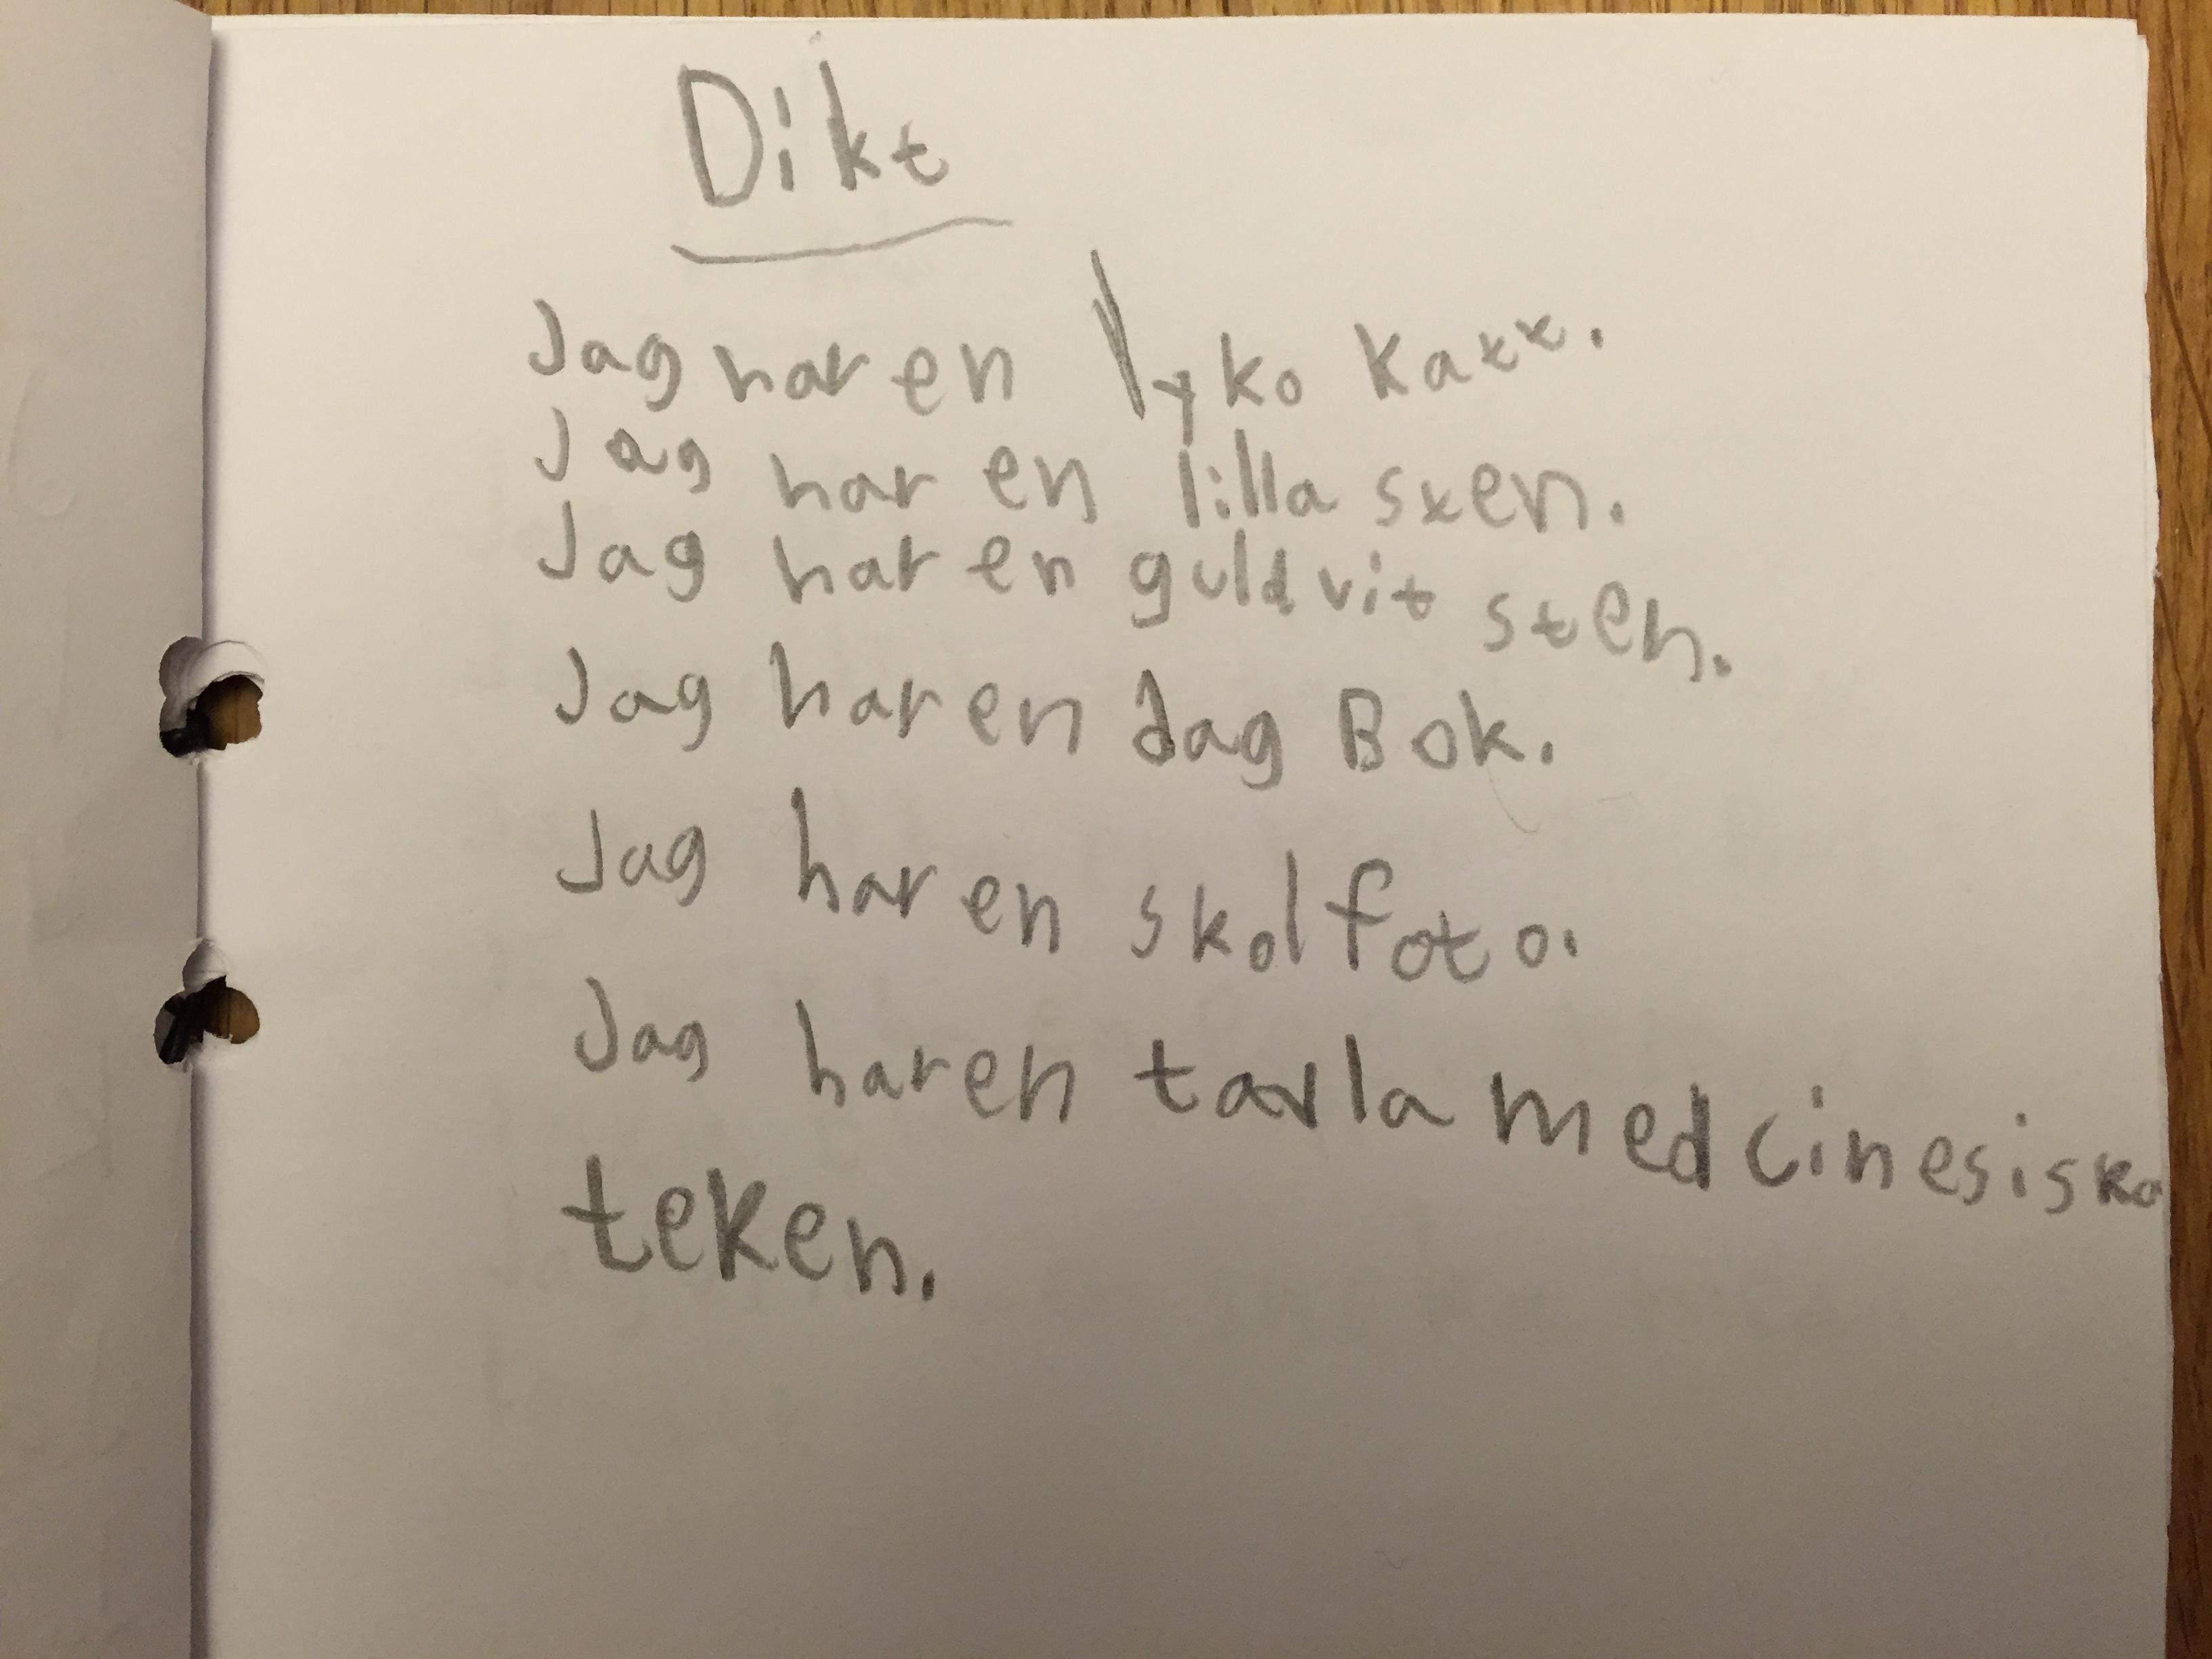 Dikt
Jag har en lyko katt.
Jag har en lilla sten.
Jag har en guld vit sten.
Jag har en dag Bok.
Jag har en skolfoto.
Jag har en tavla med cinesiska
teken.